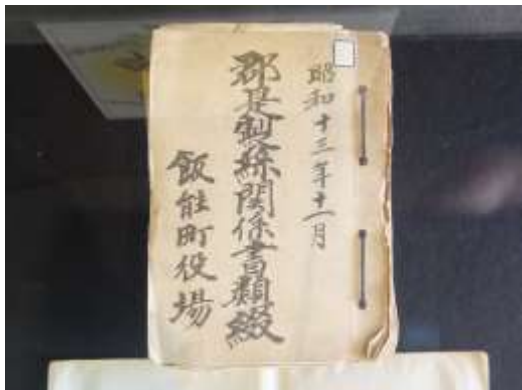 昭和十三年十一月
郡是製絲関係書類綴
飯能町役場